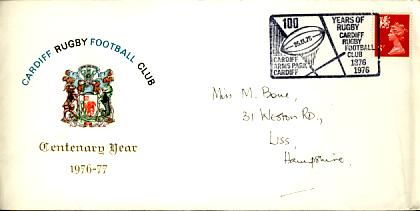 CARDIFF RUGBY FOOTBALL CLUB
Centenary Year
1976-77
100 YEARS OF
RUGBY
CARDIFF
RUGBY
FOOTBALL
CLUB
1876
1976
CARDIFF
ARMS PARK
CARDIFF
Miss M. Bone,
31 Weston RD.,
Liss,
Hampshire,